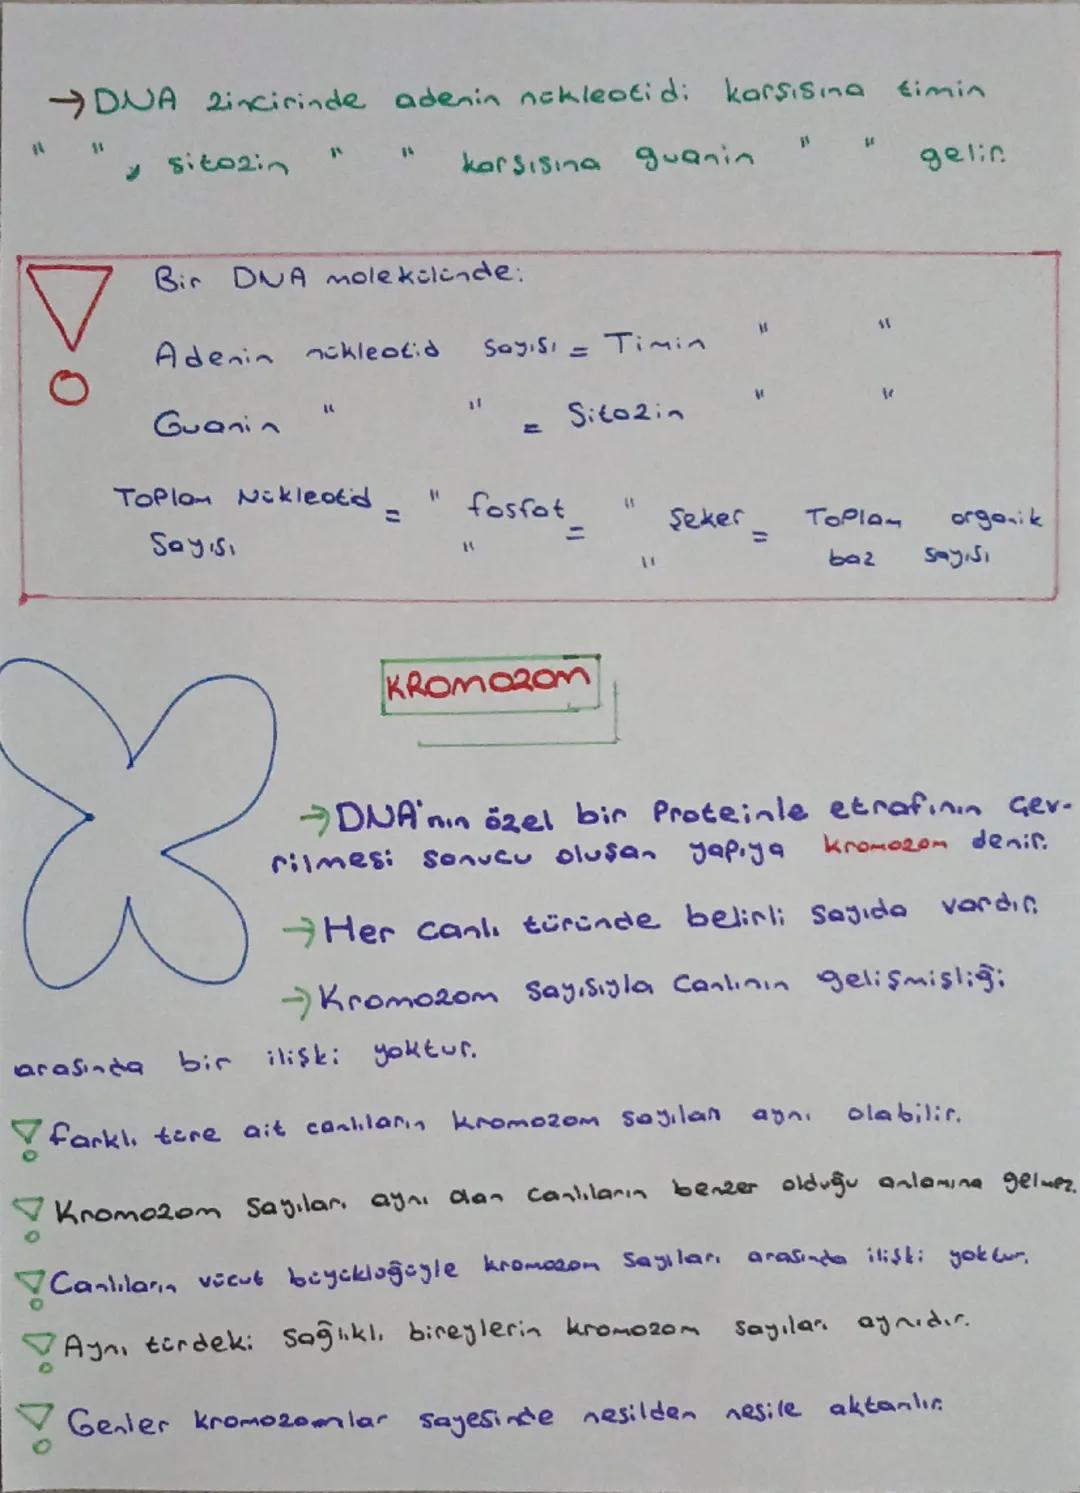 → DNA zincirinde adenin nükleotidi karşısına timin
" " , sitozin " " karşısına guanin " " gelir.
Bir DNA molekülünde:
Adenin nükleotid sayısı = Timin " "
Guanin " " = Sitozin " "
Toplam Nükleotid = " fosfat = " şeker = Toplam organik
Sayısı " " baz sayısı
KROMOZOM
→ DNA'nın özel bir Proteinle etrafının çev-
rilmesi sonucu oluşan yapıya kromozom denir.
→ Her canlı türünde belirli sayıda vardır.
→ Kromozom sayısıyla Canlının gelişmişliği
arasında bir ilişki yoktur.
! farklı türe ait canlıların kromozom sayıları aynı olabilir.
! Kromozom Sayıları aynı olan canlıların benzer olduğu anlamına gelmez.
! Canlıların vücut büyüklüğüyle kromozom Sayıları arasında ilişki yoktur.
! Aynı türdeki sağlıklı bireylerin kromozom sayıları aynıdır.
! Genler kromozomlar sayesinde nesilden nesile aktarılır.